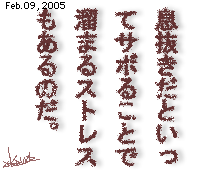 Feb.09, 2005
息抜きだといっ
てサボることで
溜まるストレス
もあるのだ。